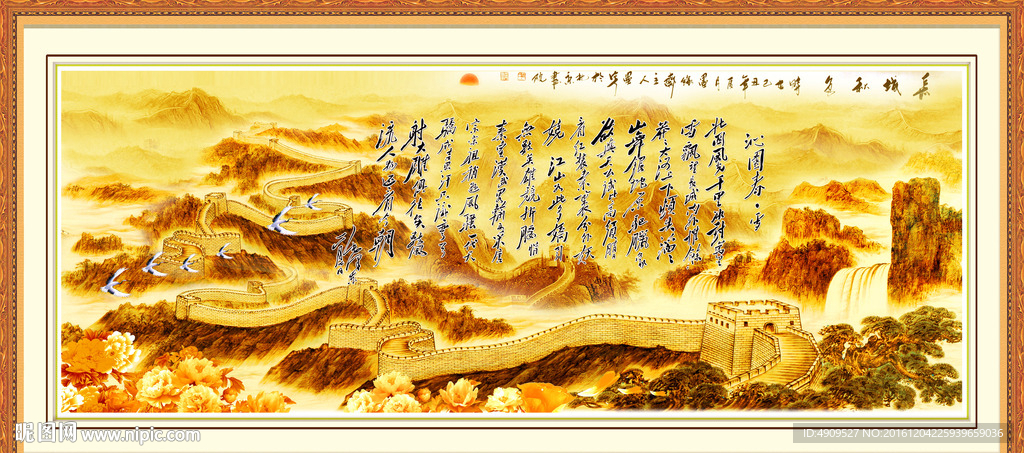 長城秋色
沁園春·雪
北国風光千里冰封萬里
雪飘望長城内外惟餘
莽莽大河上下頓失滔滔
山舞銀蛇原驰腊象
欲与天公试比高须晴日
看红装素裹分外妖
娆 江山如此多嬌引
無数英雄競折腰惜
秦皇漢武略输文采唐
宗宋祖稍逊風騷一代天
骄成吉思汗只识弯弓
射大雕俱往矣数風
流人物还看今朝
毛泽东
昵图网 www.nipic.com
ID:4909527 NO:20161204225939659036